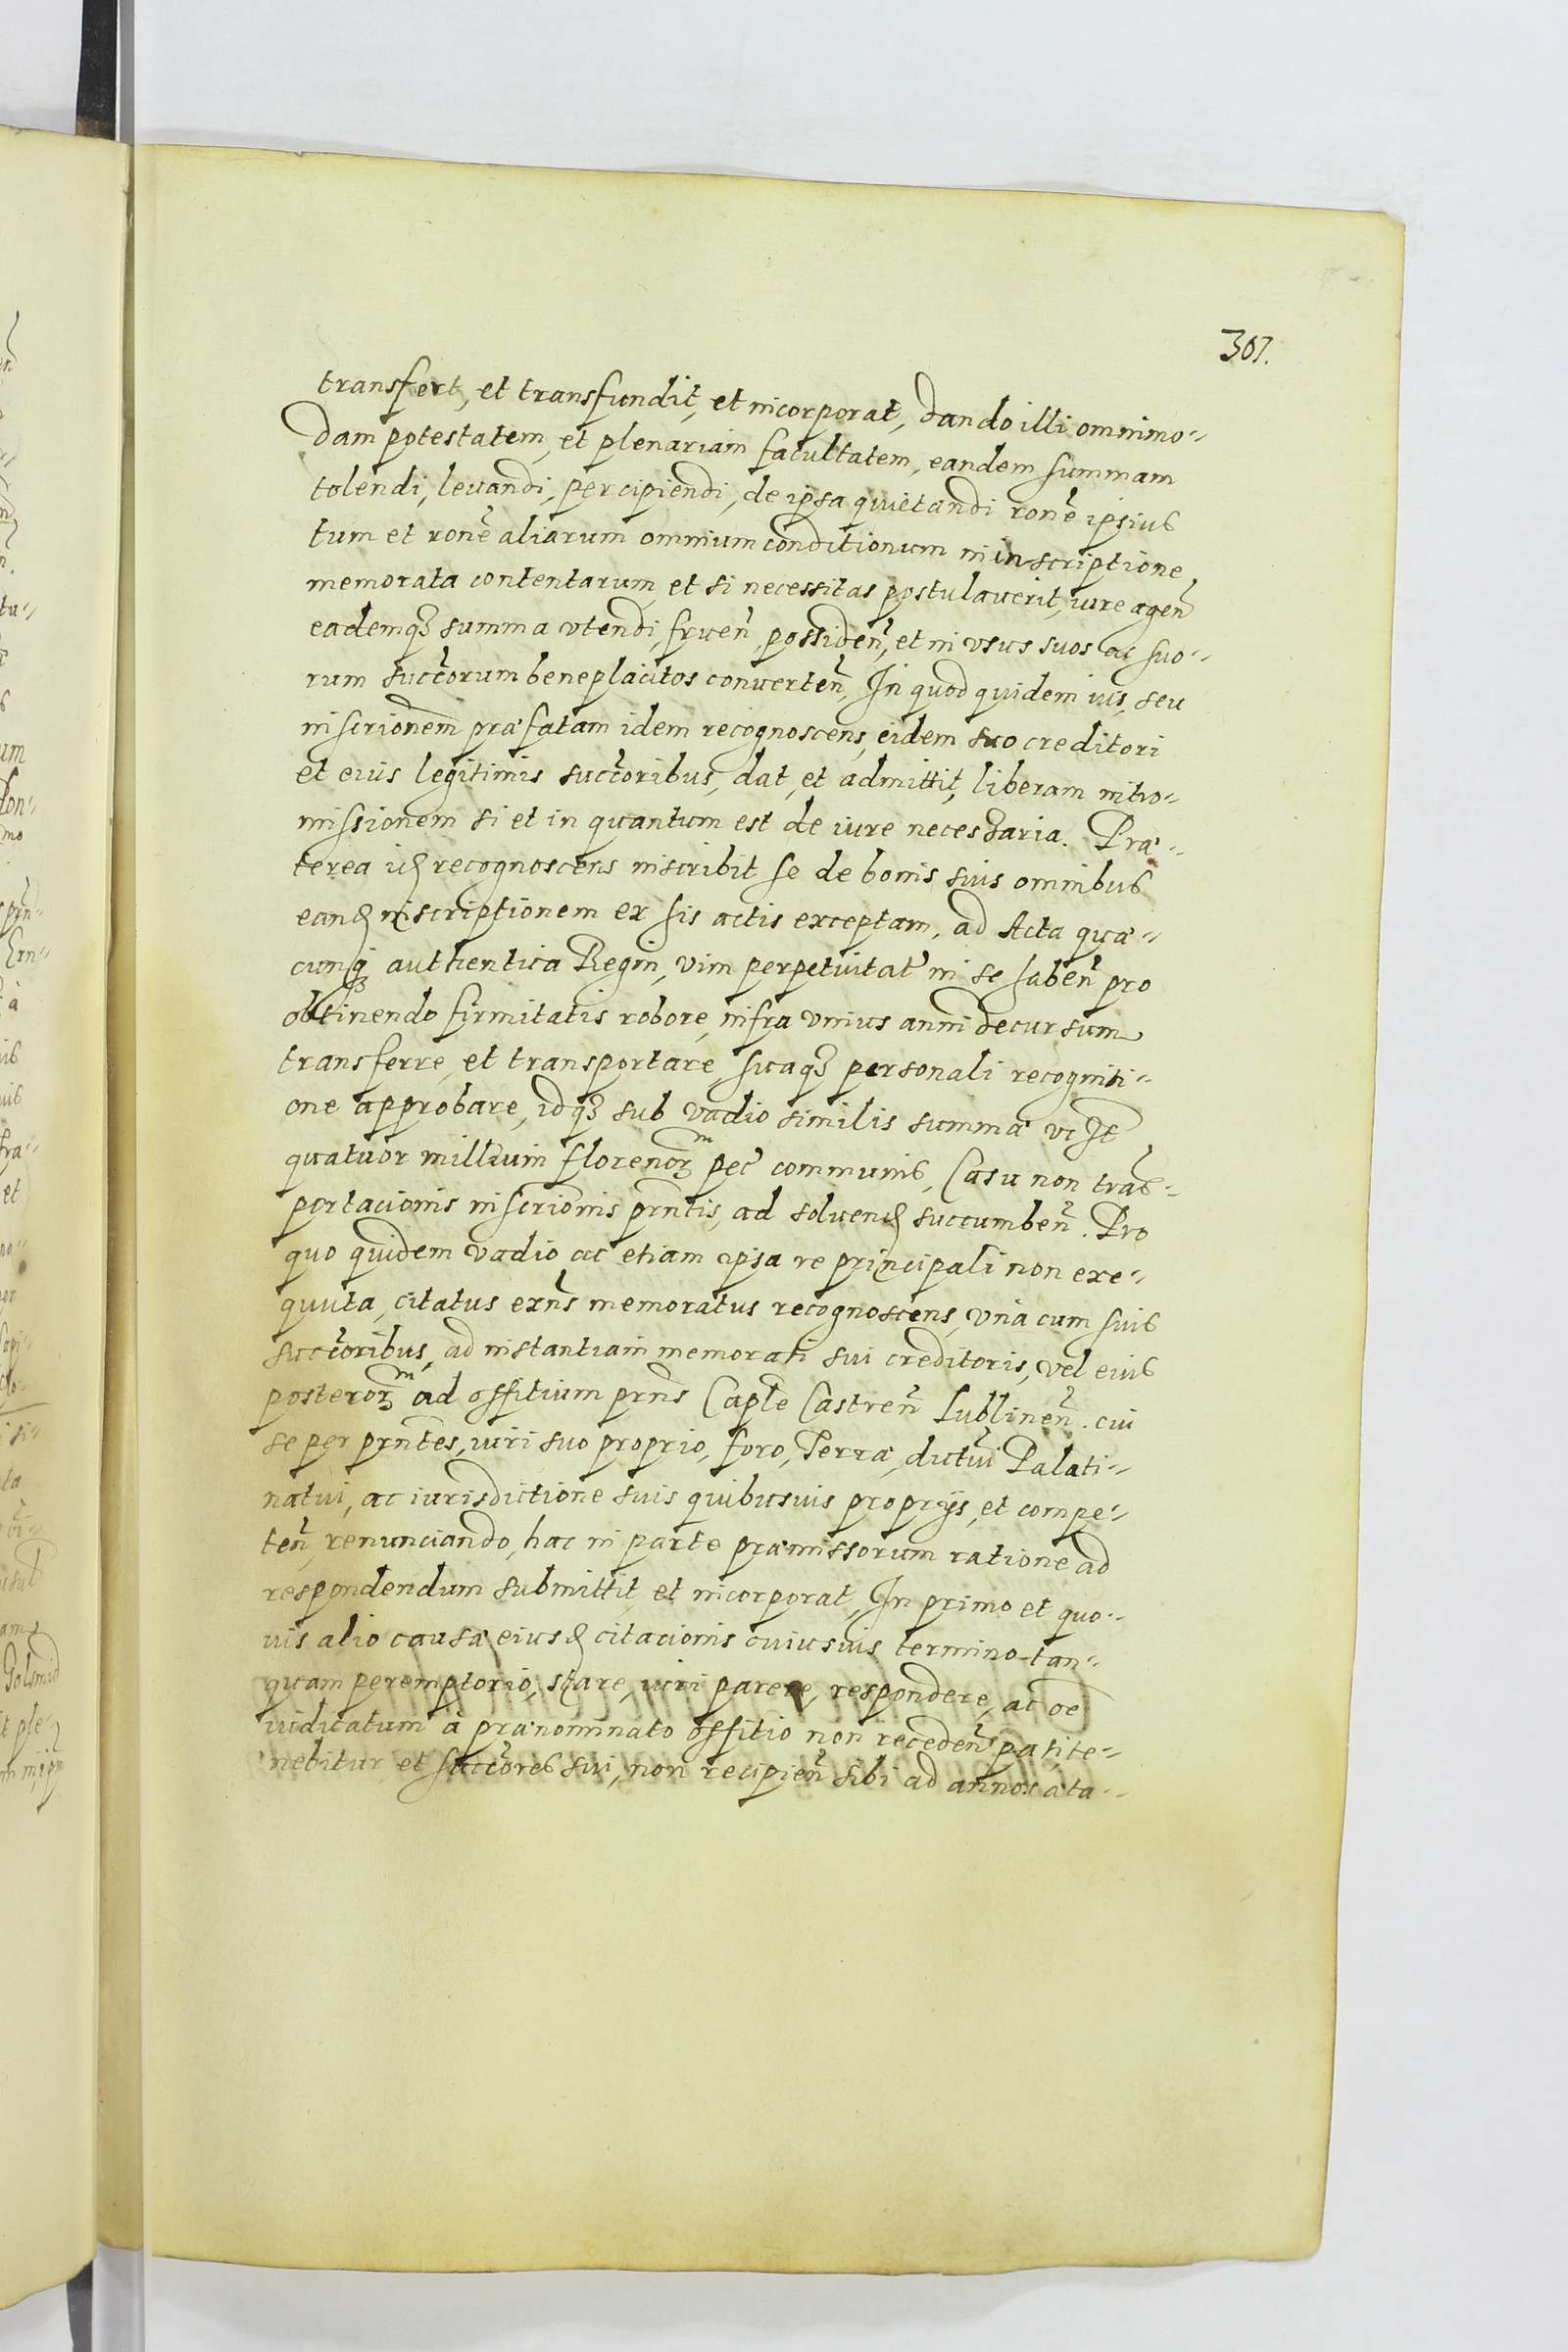 307.
transfert, et transfundit, et incorporat, dando illi omnimo-
dam potestatem, et plenariam facultatem, eandem summam
tolendi, levandi, percipiendi, de ipsa quietandi rone ipsius
tum et rone aliarum omnium conditionum in inscriptione
memorata contentarum, et si necessitas postulaverit, iure agen
eademq3 summa vtendi, fruen, possiden, et in vsus suos ac suo-
rum succorum beneplacitos converten, In quod quidem ius, seu
inscrionem præfatam idem recognoscens, eidem suo creditori
et eius legitimis succoribus, dat, et admittit, liberam intro-
missionem si et in quantum est de iure necessaria. Præ-
terea id recognoscens inscribit se de bonis suis omnibus
eand inscriptionem ex his actis exceptam, ad Acta quæ-
cunq3 authentica Regni, vim perpetuitat in se haben pro
obtinendo firmitatis robore, infra vnius anni decursum
transferre, et transportare, suaq3 personali recogniti-
one approbare, idq3 sub vadio similis summæ vc
quatuor millium florenorm pec communis, Casu non tras-
portacionis inscrionis prntis, ad solvend succumben. Pro
quo quidem vadio ac etiam ipsa re principali non exe-
quuta, citatus exns memoratus recognoscens, vna cum suis
succoribus, ad instantiam memorati sui creditoris, vel eius
posterorm ad offitium prns Caple Castren Lublinen. cui
se per prntes, iuri suo proprio, foro, Terræ, dictui Palati-
natui, ac iurisdictione suis quibusuis proprijs, et compe-
ten, renunciando, hac in parte præmissorum ratione ad
respondendum submittit, et incorporat, In primo et quo-
uis alio causæ eiusd citacionis cuiusuis termino tan-
quam peremptorio, stare, iuri parere, respondere, ac oe
iudicatum à prænominato offitio non receden pati te-
nebitur et succores sui, non recipien sibi ad annos æta-